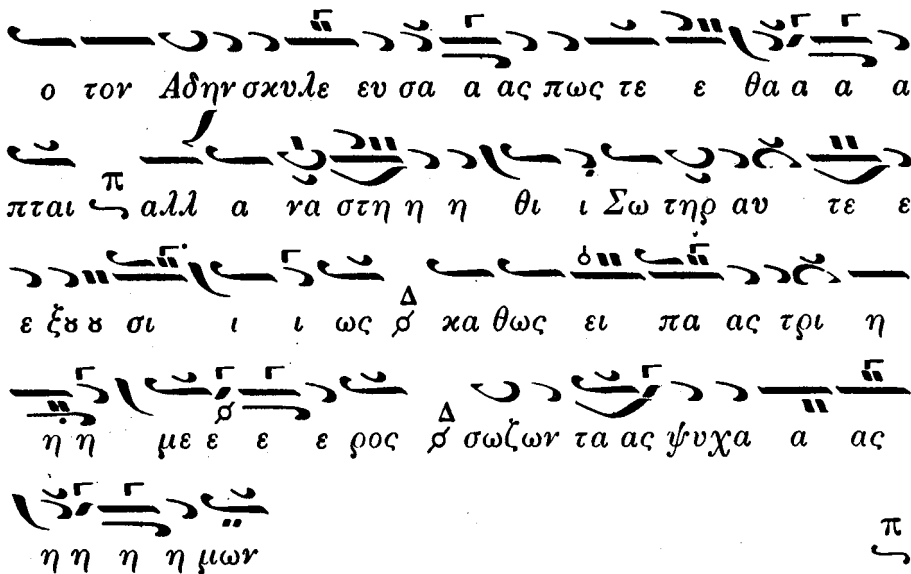 ο τον Αδην σκυλε ευ σα α ας πως τε ε θα α α α
πται π αλλ α να στη η η θι ι Σω τηρ αυ τε ε
ε ξȣ ȣ σι ι ι ως Δ κα θως ει πα ας τρι η
η η με ε ε ε ρος Δ σωζων τα ας ψυχα α ας
η η η η μων π